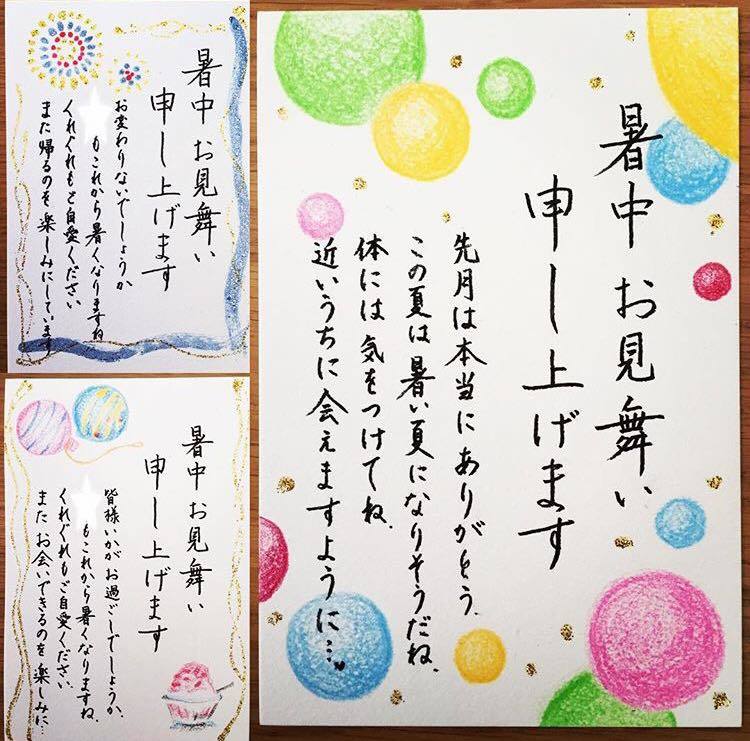 暑中お見舞い
申し上げます
お変わりないでしょうか
もこれから暑くなりますね
くれぐれもご自愛ください
また帰るのを楽しみにしています
暑中お見舞い
申し上げます
皆様いかがお過ごしでしょうか。
もこれから暑くなりますね。
くれぐれもご自愛ください。
またお会いできるのを楽しみに…
暑中お見舞い
申し上げます
先月は本当にありがとう。
この夏は暑い夏になりそうだね。
体には気をつけてね。
近いうちに会えますように…。